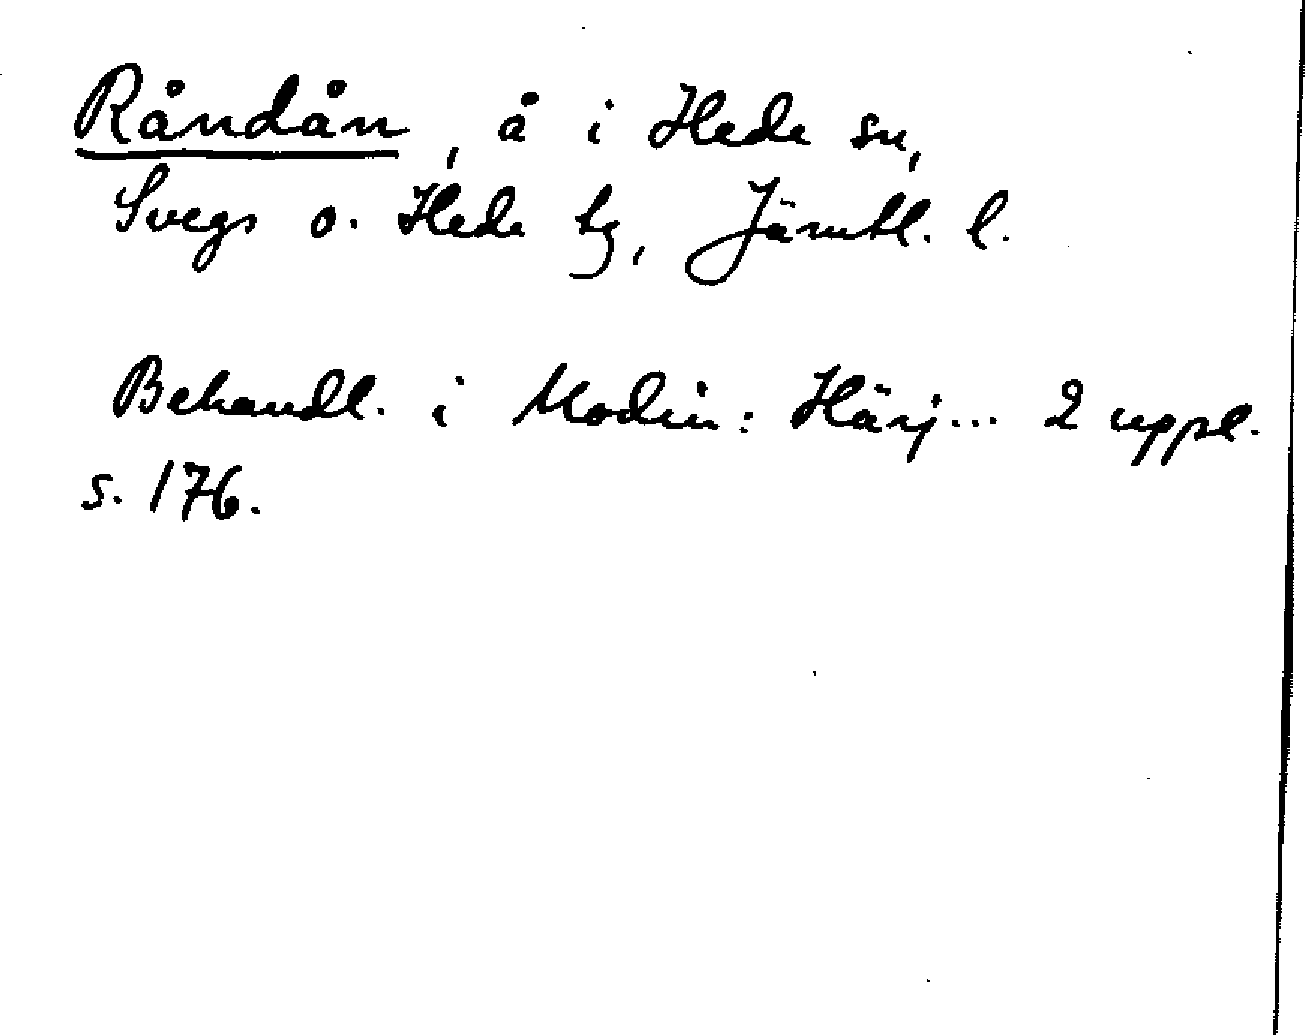 Råndån, å i Hede sn,
Svegs o. Hede tg, Jämtl. l.
Behandl. i Modin: Härj... 2 uppl.
s. 176.